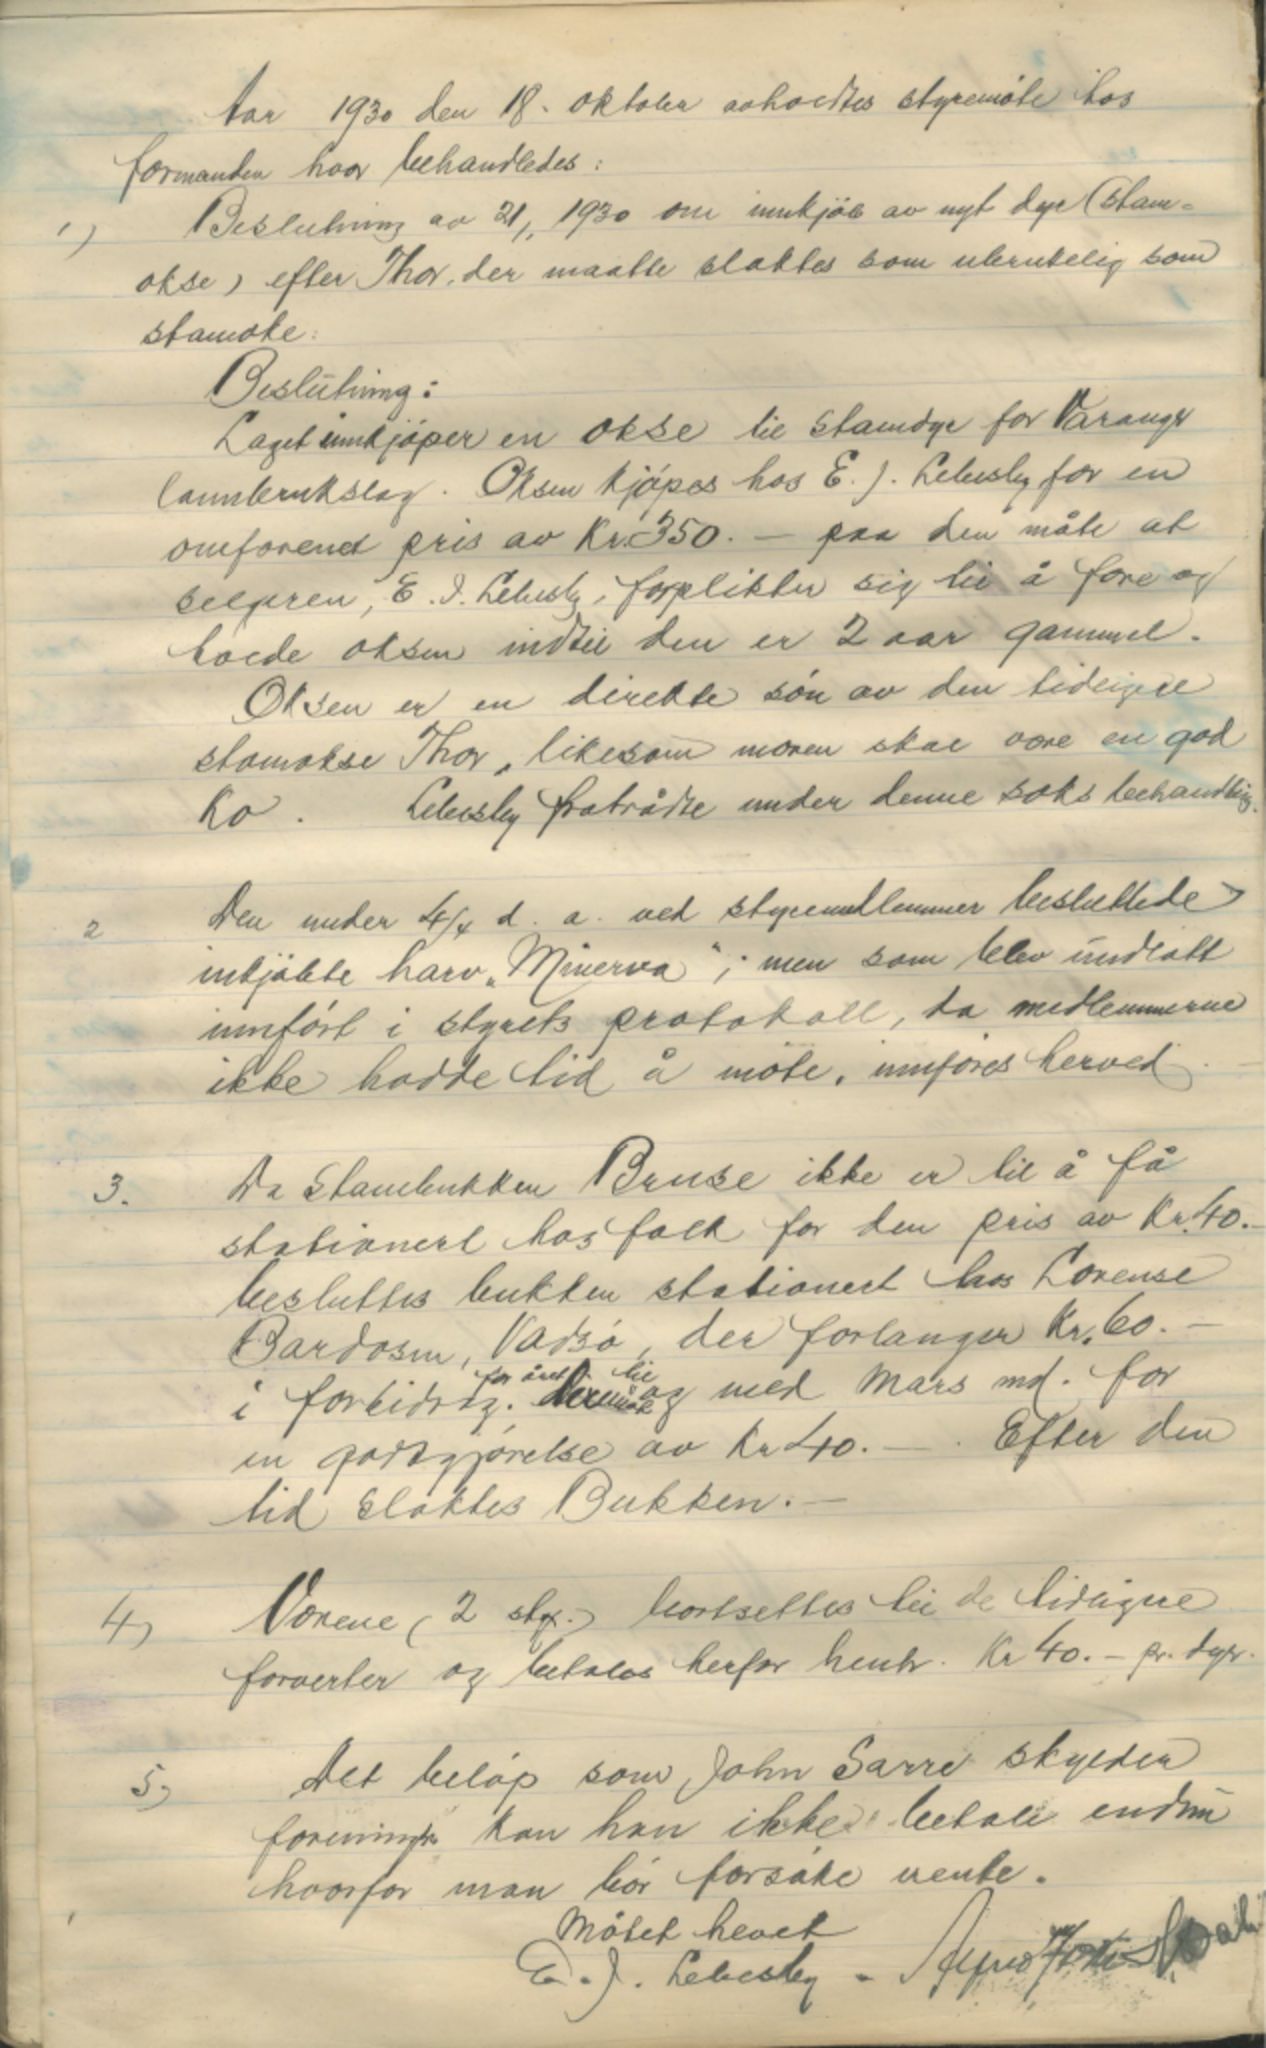 Aar 1930 den 18. oktober avholdtes styremöte hos
formanden hvor behandledes:
1) Beslutning av 21/, 1930 om innkjöb av nyt dyr (stam-
okse) efter Thor, der maatte slaktes som ubrukelig som
stamokse:
Beslutning:
Laget innkjöper en okse til stamdyr for Varanger
lannbrukslag. Oksen kjöpes hos E. J. Lebesby for en
omforenet pris av Kr. 350.— paa den måte at
selgeren, E. J. Lebesby, forplikter sig til å fore og
holde oksen indtil den er 2 aar gammel.
Oksen er en direkte sön av den tidligere
stamokse Thor, likesom moren skal være en god
Ko. Lebesby fratrådte under denne saks behandling.
2 Den under 4/4 d. a. ved styremedlemmer besluttede
inkjöbte harv „Minerva"; men som blev undlatt
innfört i styrets protokoll, da medlemmerne
ikke hadde tid å möte, innföres herved.
3. Da Stambukken Bruse ikke er til å få
stationert hos folk for den pris av Kr. 40.—
besluttes bukken stationert hos Lorense
Bardosen, Vadsö, der forlanger Kr. 60.—
for året til
i forbidrag. og med Mars md. for
en godtgjörelse av Kr 40.—. Efter den
tid slaktes Bukken.—
4) Værene (2 stk.) bortsettes til de tidligere
forverter og betales herfor henh. Kr 40.— pr. dyr.
5) Det belöp som John Sarre skylder
foreningen kan han ikke betale endnu
hvorfor man bör forsöke vente.
Mötet hevet
E. J. Lebesby.